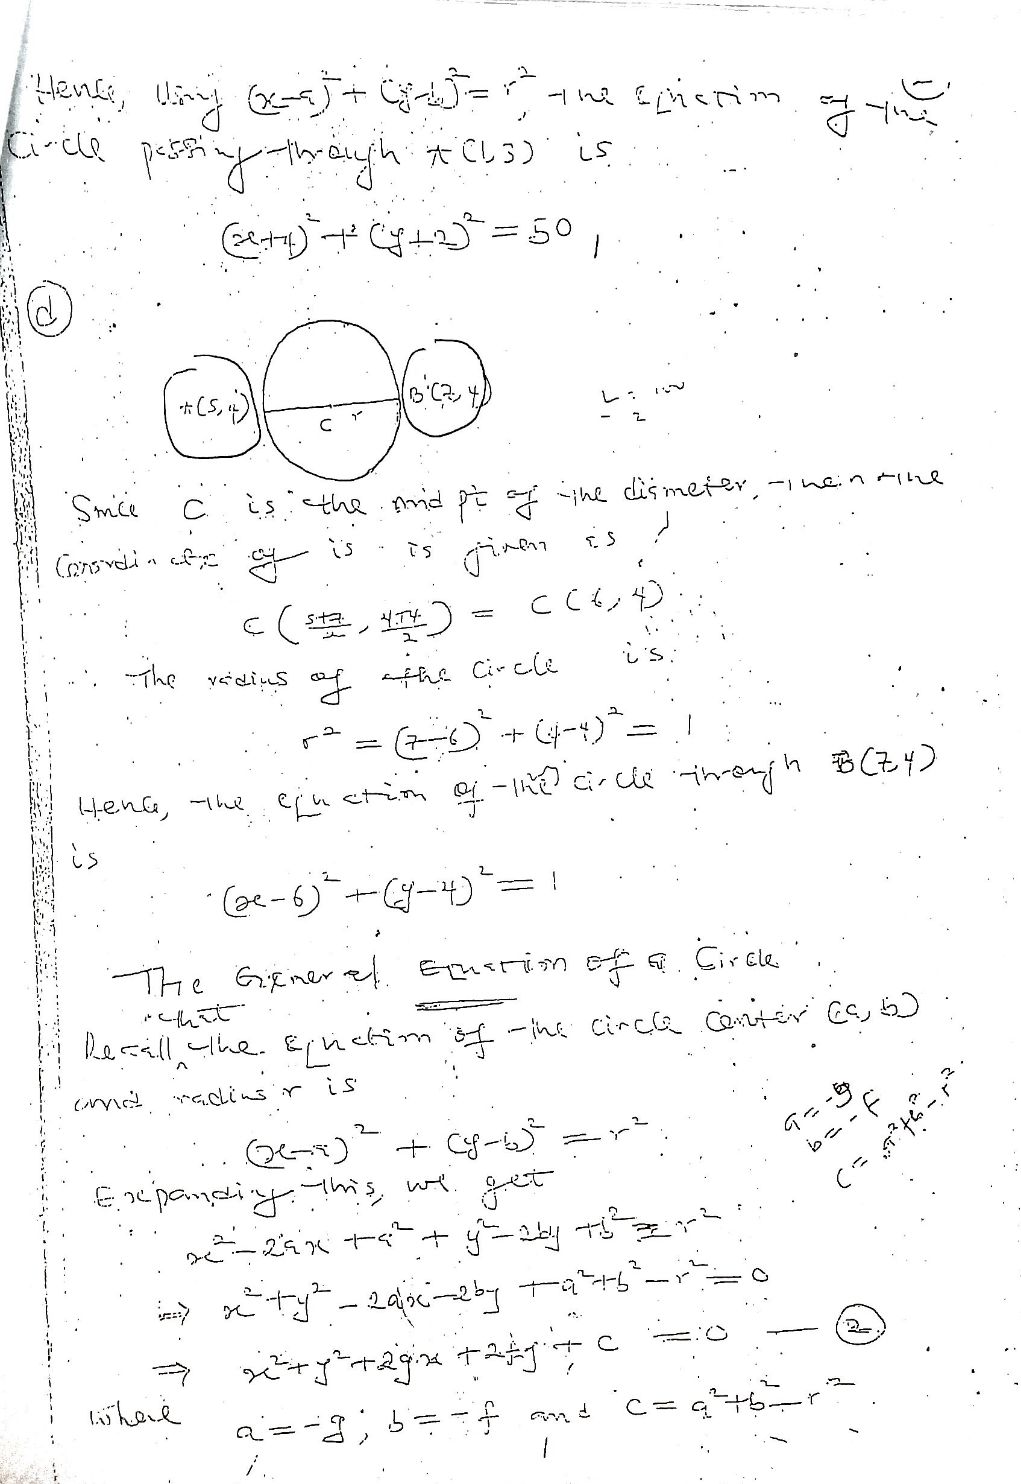 Hence, Using (x-a)² + (y-b)² = r², the Equation of the
Circle passing through A(1,3) is
(x+4)² + (y+2)² = 50,
(d)
A(5,4) C r B(7,4)
Since C is the mid pt of the diameter, then the
Coordinate of is is given as
C(5+7/2, 4+4/2) = C(6,4)
∴ The radius of the Circle is
r² = (7-6)² + (4-4)² = 1
Hence, the equation of the circle through B(7,4)
is
(x-6)² + (y-4)² = 1
The General Equation of a Circle
that
Recall the Equation of the circle center (a,b)
and radius r is
(x-a)² + (y-b)² = r²
a=-g
b=-f
c=a²+b²-r²
Expanding this, we get
x²-2ax+a²+y²-2by+b²=r²
⇒ x²+y²-2ax-2by+a²+b²-r²=0
⇒ x²+y²+2gx+2fy+c=0 — (2)
Where a=-g; b=-f and c=a²+b²-r²